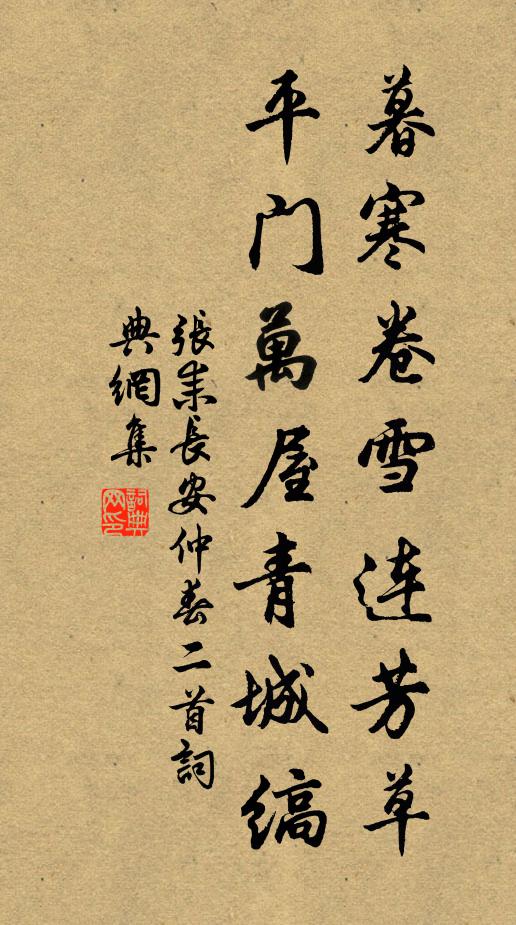 暮寒卷雪连芳草
平门萬屋青城缟
張耒長安仲春二首詞
典網集
詞典网印